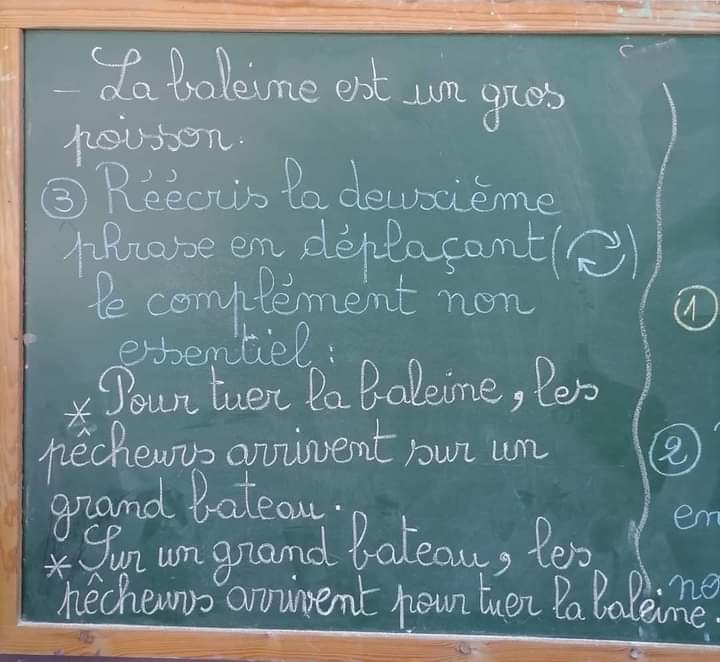 - La baleine est un gros
poisson.
③ Réécris la deuxième
phrase en déplaçant ( )
le complément non
essentiel :
* Pour tuer la baleine, les
pêcheurs arrivent sur un
grand bateau.
* Sur un grand bateau, les
pêcheurs arrivent pour tuer la baleine.
①
②
en
no